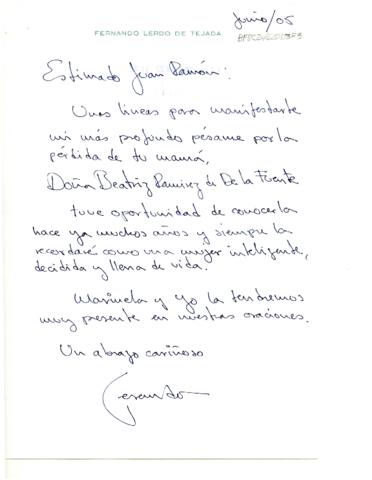 Junio/05
FERNANDO LERDO DE TEJADA
Estimado Juan Ramón:
Unas líneas para manifestarte
mi más profundo pésame por la
pérdida de tu mamá,
Doña Beatriz Ramirez de De la Fuente
tuve oportunidad de conocerla
hace ya muchos años y siempre la
recordaré como una mujer inteligente,
decidida y llena de vida.
Marinela y yo la tendremos
muy presente en nuestras oraciones.
Un abrazo cariñoso